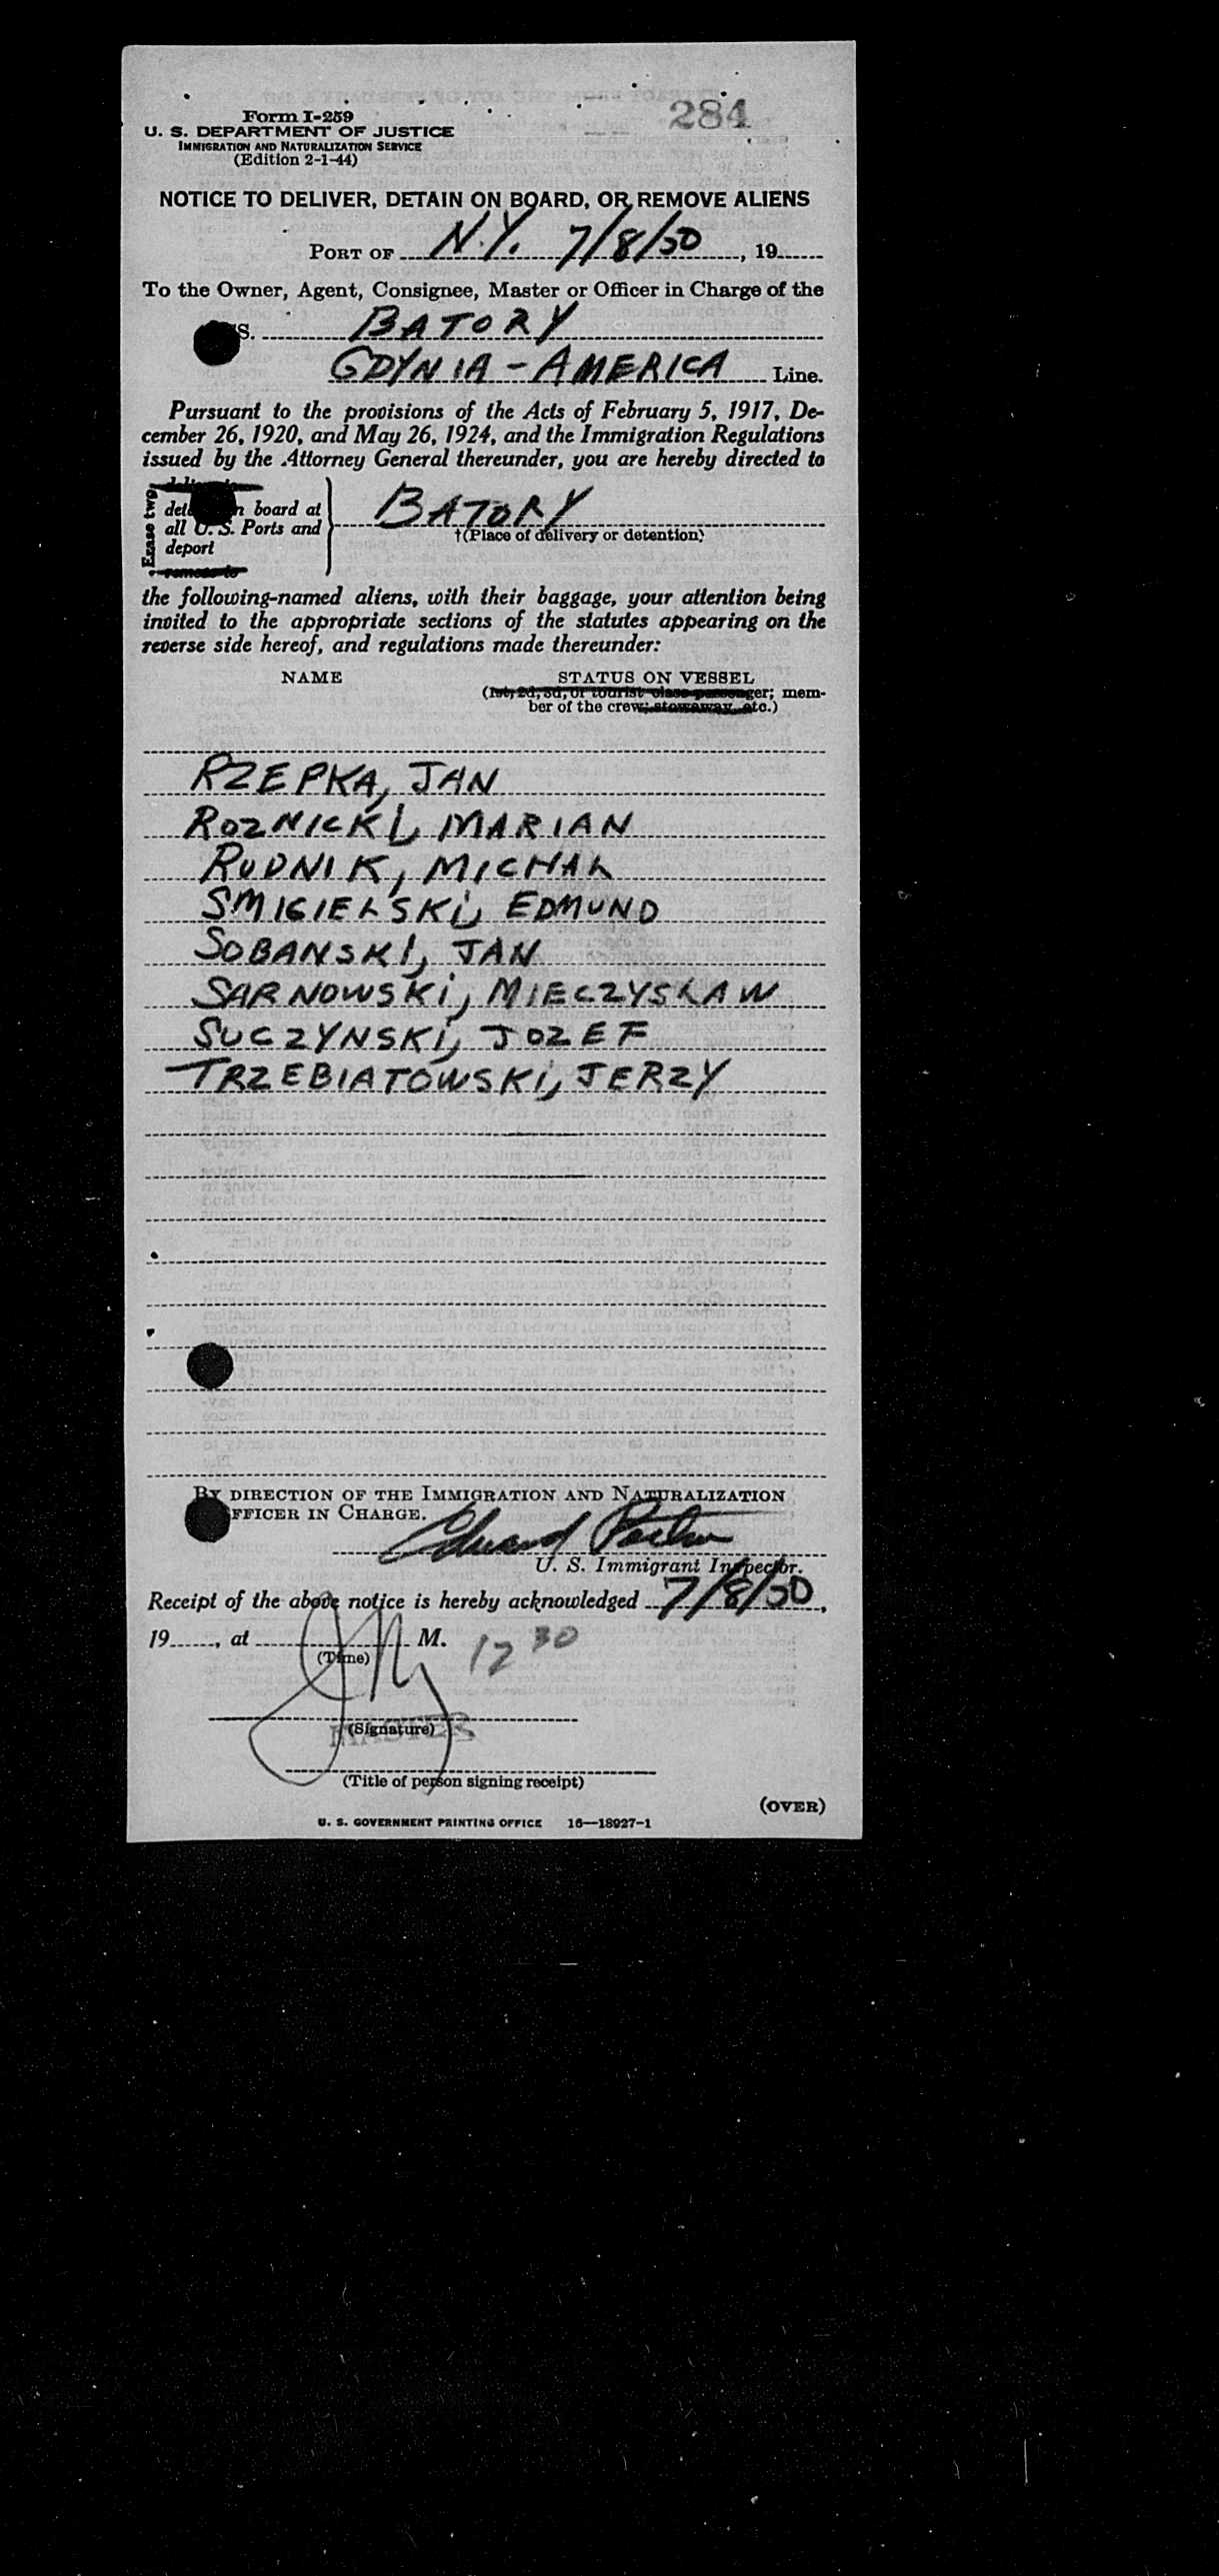 284
Form I-259
U. S. DEPARTMENT OF JUSTICE
IMMIGRATION AND NATURALIZATION SERVICE
(Edition 2-1-44)
NOTICE TO DELIVER, DETAIN ON BOARD, OR REMOVE ALIENS
PORT OF N.Y. 7/8/50, 19
To the Owner, Agent, Consignee, Master or Officer in Charge of the
S. BATORY
GDYNIA - AMERICA Line.
Pursuant to the provisions of the Acts of February 5, 1917, De-
cember 26, 1920, and May 26, 1924, and the Immigration Regulations
issued by the Attorney General thereunder, you are hereby directed to
Erase two
board at
all U. S. Ports and
deport
BATORY
†(Place of delivery or detention)
the following-named aliens, with their baggage, your attention being
invited to the appropriate sections of the statutes appearing on the
reverse side hereof, and regulations made thereunder:
NAME STATUS ON VESSEL
(1st, 2d, 3d, or tourist class passenger; mem-
ber of the crew; stowaway, etc.)
RZEPKA, JAN
ROZNICKI, MARIAN
RUDNIK, MICHAŁ
SMIGIELSKI, EDMUND
SOBANSKI, JAN
SARNOWSKI, MIECZYSŁAW
SUCZYNSKI, JOZEF
TRZEBIATOWSKI, JERZY
BY DIRECTION OF THE IMMIGRATION AND NATURALIZATION
OFFICER IN CHARGE.
Edward
U. S. Immigrant Inspector.
Receipt of the above notice is hereby acknowledged 7/8/50,
19, at M. 12 30
(Time)
(Signature)
MASTER
(Title of person signing receipt)
(OVER)
U. S. GOVERNMENT PRINTING OFFICE 16—18927-1